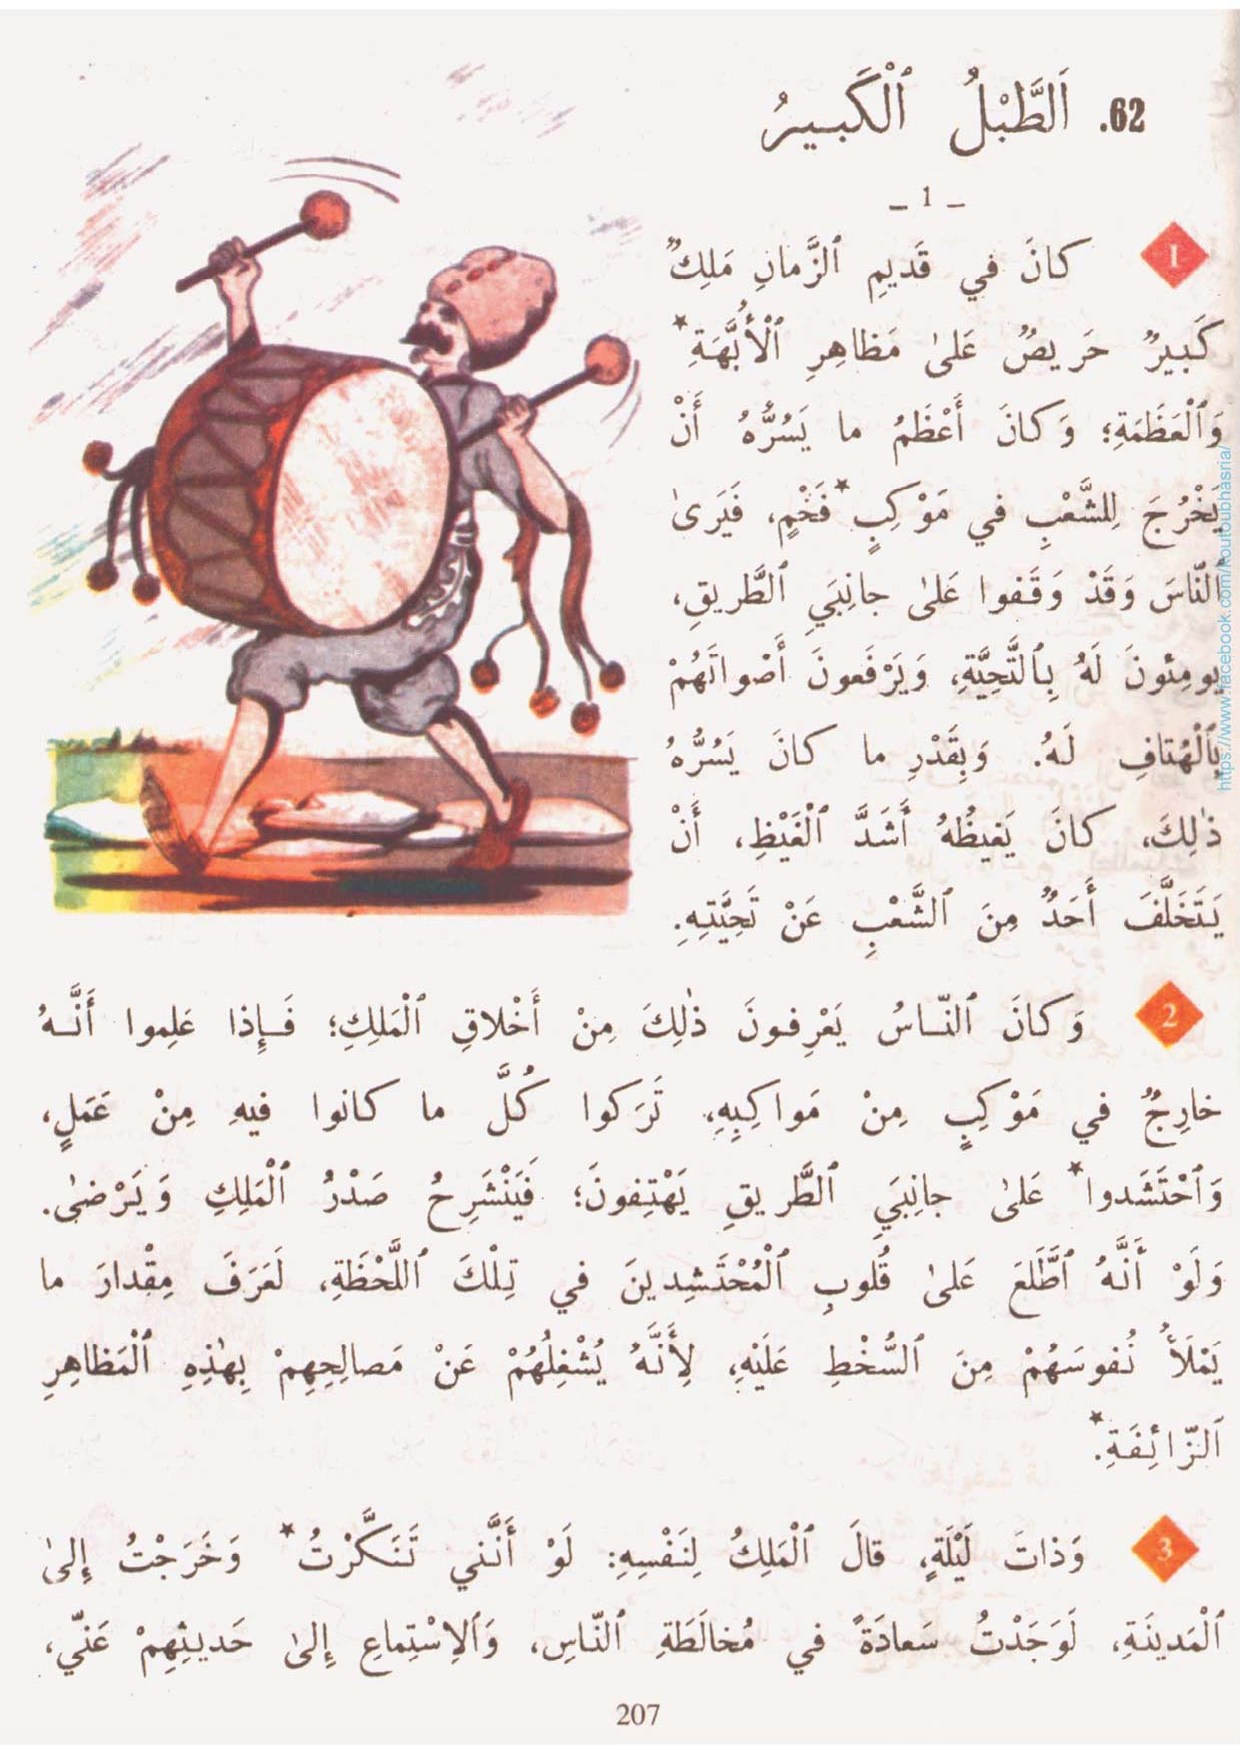 62. اَلطَّبْلُ ٱلْكَبيرُ
_ 1 _
1 كانَ في قَديمِ ٱلزَّمانِ مَلِكٌ
كَبيرٌ حَريصٌ عَلىٰ مَظاهِرِ ٱلْأُبَّهَةِ*
وَٱلْعَظَمَةِ؛ وَكانَ أَعْظَمُ ما يَسُرُّهُ أَنْ
يَخْرُجَ لِلشَّعْبِ في مَوْكِبٍ* فَخْمٍ، فَيَرىٰ
ٱلنّاسَ وَقَدْ وَقَفوا عَلىٰ جانِبَيِ ٱلطَّريقِ،
يومِئونَ لَهُ بِٱلتَّحِيَّةِ، وَيَرْفَعونَ أَصْواتَهُمْ
بِٱلْهُتافِ لَهُ. وَبِقَدْرِ ما كانَ يَسُرُّهُ
ذٰلِكَ، كانَ يَغيظُهُ أَشَدَّ ٱلْغَيْظِ، أَنْ
يَتَخَلَّفَ أَحَدٌ مِنَ ٱلشَّعْبِ عَنْ تَحِيَّتِهِ.
2 وَكانَ ٱلنّاسُ يَعْرِفونَ ذٰلِكَ مِنْ أَخْلاقِ ٱلْمَلِكِ؛ فَإِذا عَلِموا أَنَّهُ
خارِجٌ في مَوْكِبٍ مِنْ مَواكِبِهِ، تَرَكوا كُلَّ ما كانوا فيهِ مِنْ عَمَلٍ،
وَٱحْتَشَدوا* عَلىٰ جانِبَيِ ٱلطَّريقِ يَهْتِفونَ؛ فَيَنْشَرِحُ صَدْرُ ٱلْمَلِكِ وَيَرْضىٰ.
وَلَوْ أَنَّهُ ٱطَّلَعَ عَلىٰ قُلوبِ ٱلْمُحْتَشِدينَ في تِلْكَ ٱللَّحْظَةِ، لَعَرَفَ مِقْدارَ ما
يَمْلَأُ نُفوسَهُمْ مِنَ ٱلسُّخْطِ عَلَيْهِ، لِأَنَّهُ يُشْغِلُهُمْ عَنْ مَصالِحِهِمْ بِهٰذِهِ ٱلْمَظاهِرِ
ٱلزّائِفَةِ*.
3 وَذاتَ لَيْلَةٍ، قالَ ٱلْمَلِكُ لِنَفْسِهِ: لَوْ أَنَّني تَنَكَّرْتُ* وَخَرَجْتُ إِلىٰ
ٱلْمَدينَةِ، لَوَجَدْتُ سَعادَةً في مُخالَطَةِ ٱلنّاسِ، وَٱلِاسْتِماعِ إِلىٰ حَديثِهِمْ عَنّي،
207
https://www.facebook.com/koutoubhasria/